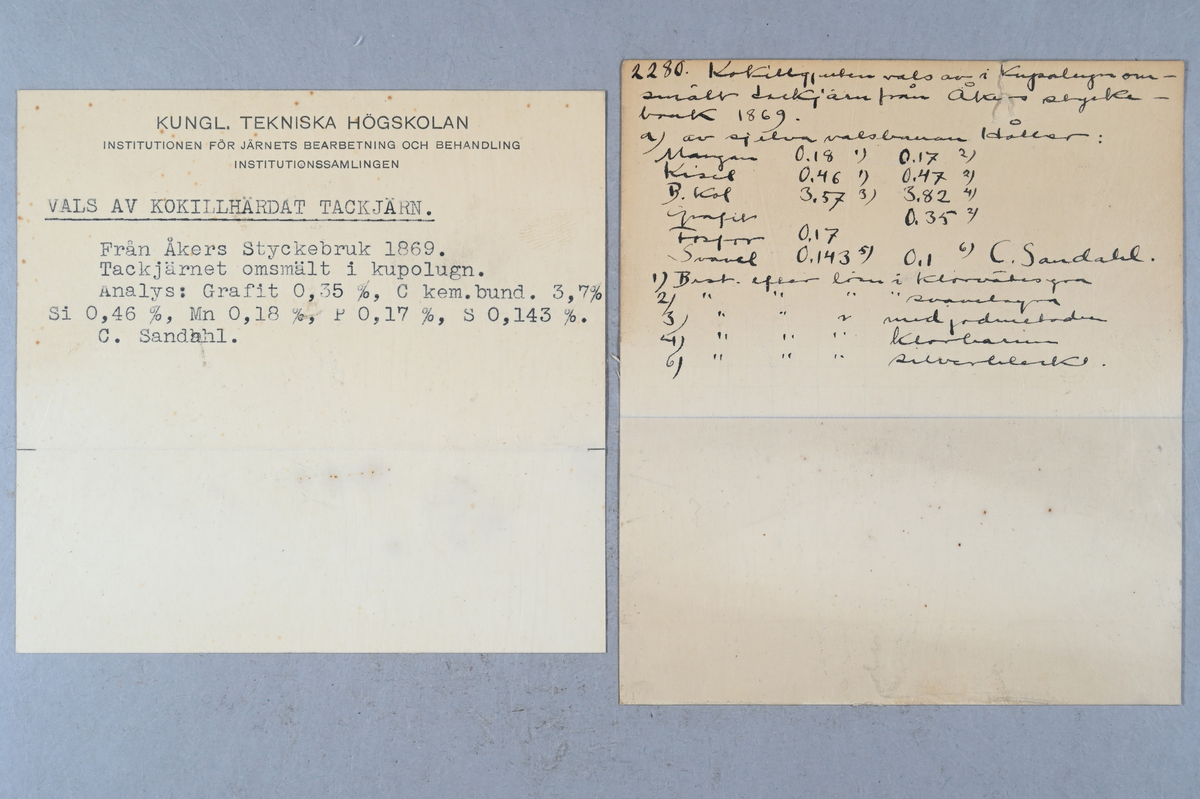 KUNGL. TEKNISKA HÖGSKOLAN
INSTITUTIONEN FÖR JÄRNETS BEARBETNING OCH BEHANDLING
INSTITUTIONSSAMLINGEN
VALS AV KOKILLHÄRDAT TACKJÄRN.
Från Åkers Styckebruk 1869.
Tackjärnet omsmält i kupolugn.
Analys: Grafit 0,35 %, C kem.bund. 3,7%
Si 0,46 %, Mn 0,18 %, P 0,17 %, S 0,143 %.
C. Sandahl.
2280. Kokillgjuten vals av i Kupolugn om-
smält tackjärn från Åkers stycke-
bruk 1869.
a) av själva valsbanan Håller:
Mangan 0.18 1) 0.17 2)
Kisel 0.46 1) 0.47 2)
B. Kol 3,57 3) 3.82 4)
Grafit 0.35 2)
Fosfor 0.17
Svavel 0.143 5) 0.1 6) C. Sandahl.
1) Best. efter lösn i Klorvätesyra
2) " " " svavelsyra
3) " " " med jodmetoden
4) " " " klorbarium
6) " " " silverbleck.